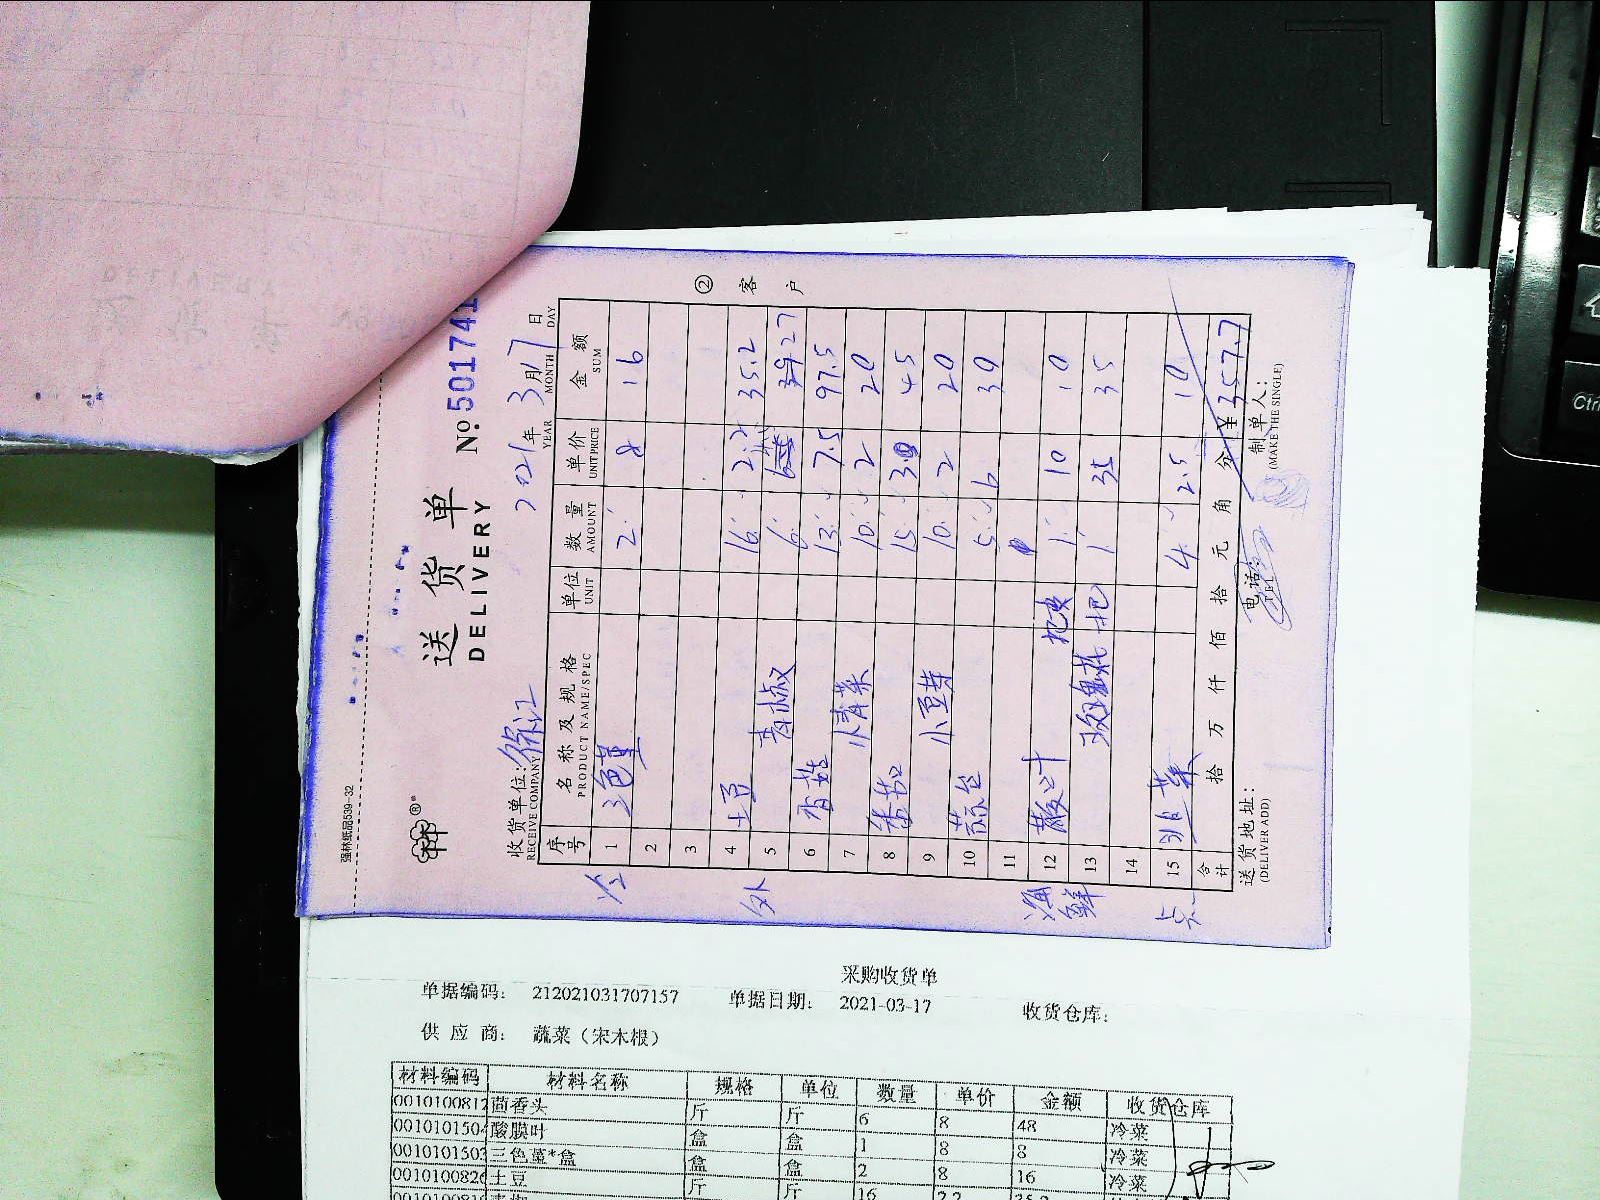 强林纸品539-32
送货单
DELIVERY
№ 501741
收货单位: 徐江
RECEIVE COMPANY
2021年 3月17日
YEAR MONTH DAY
② 客户
序号 名称及规格 单位 数量 单价 金额
PRODUCT NAME/SPEC UNIT AMOUNT UNIT PRICE SUM
1 三色堇 2 8 16
2
3
4 土豆 16 2.2 35.2
5 青椒 6
6 香菇 13 7.5 97.5
7 小青菜 10 2 20
8 番茄 15 3 45
9 小豆芽 10 2 20
10 蒜苗 5 6 30
11
12 酸汁 1 10 10
13 1 35 35
14
15 韭菜 4 2.5 10
合计 拾 万 仟 佰 拾 元 角 分 ¥357.7
送货地址:
(DELIVER ADD)
电话
TEL
制单人:
(MAKE THE SINGLE)
外
海鲜
点
采购收货单
单据编码: 212021031707157 单据日期: 2021-03-17 收货仓库:
供应商: 蔬菜（宋木根）
材料编码 材料名称 规格 单位 数量 单价 金额 收货仓库
0010100812 茴香头 斤 斤 6 8 48 冷菜
001010150 酸膜叶 盒 盒 1 8 8 冷菜
001010150 三色堇*盒 盒 盒 2 8 16 冷菜
001010082 土豆 斤 斤 16 2.2 35.2